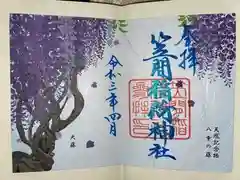 奉拝
笠間稲荷神社
令和三年四月
天然記念物
八重の藤
大藤